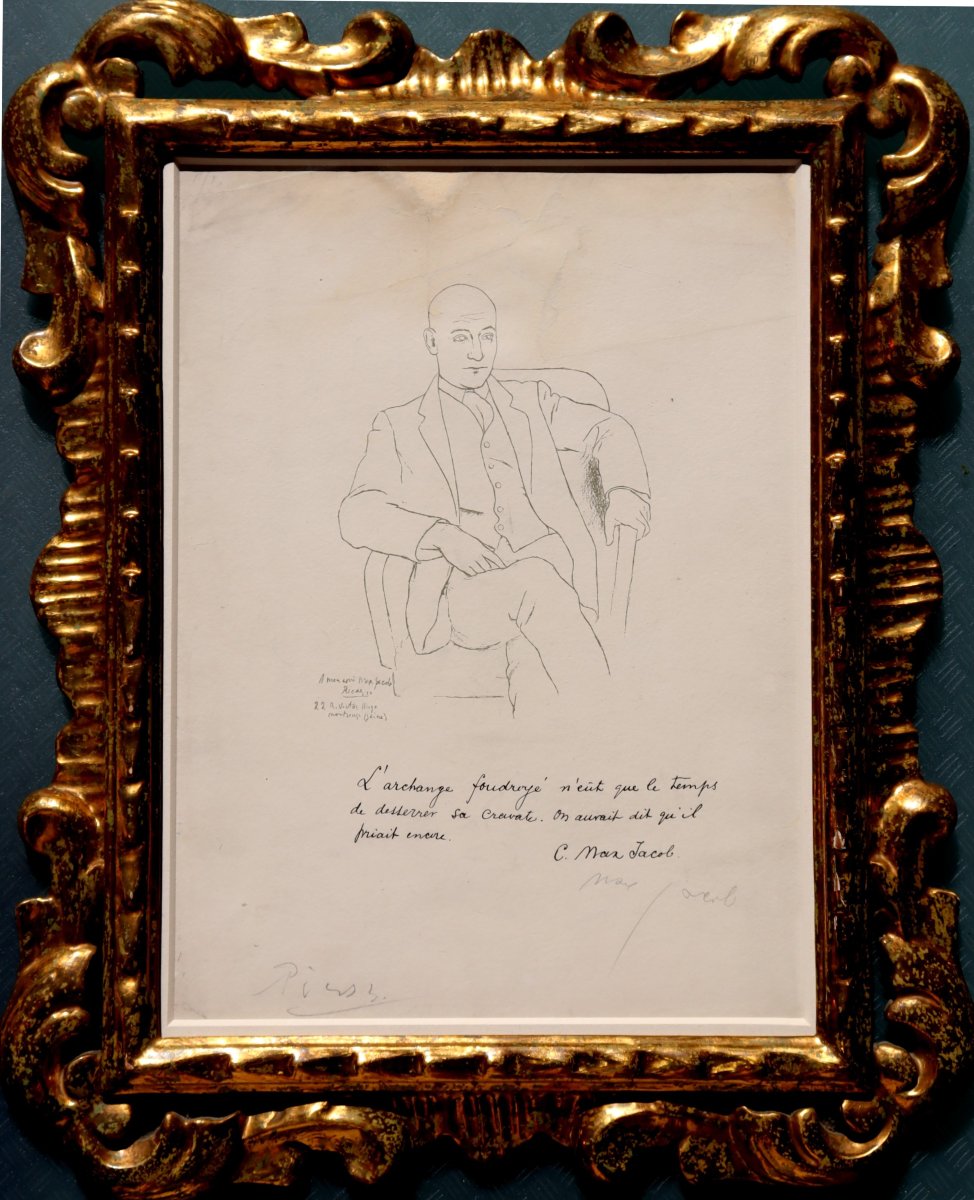 A mon ami Max Jacob
Picasso
22 R. Victor Hugo
montrouge (Seine)
L'archange foudroyé n'eût que le temps
de desserrer sa cravate. On aurait dit qu'il
priait encore.
C. Max Jacob.
Max Jacob
Picasso